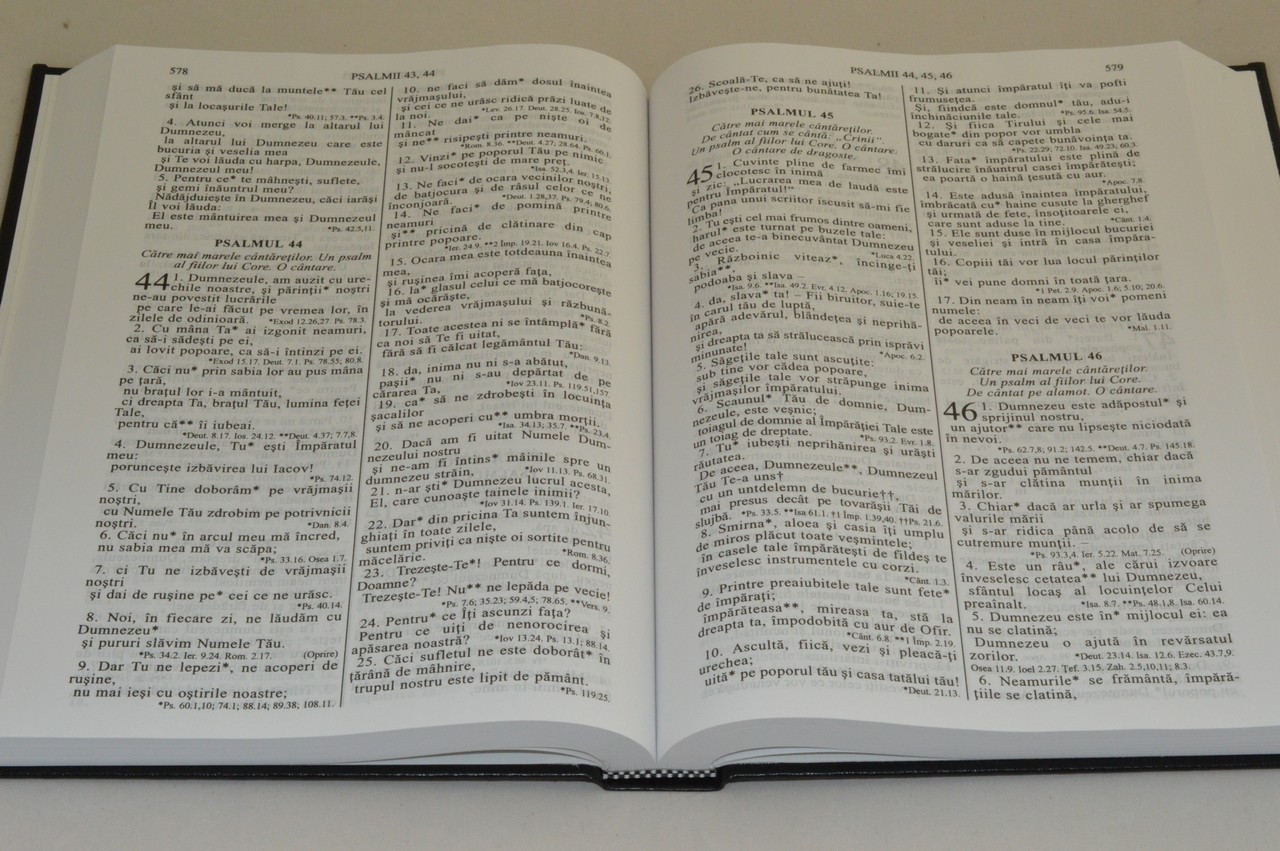 578
PSALMII 43, 44
şi să mă ducă la muntele** Tău cel
sfânt
şi la locaşurile Tale!
*Ps. 40.11; 57.3. **Ps. 3.4.
4. Atunci voi merge la altarul lui
Dumnezeu,
la altarul lui Dumnezeu care este
bucuria şi veselia mea
şi Te voi lăuda cu harpa, Dumnezeule,
Dumnezeul meu!
5. Pentru ce* te mâhneşti, suflete,
şi gemi înăuntrul meu?
Nădăjduieşte în Dumnezeu, căci iarăşi
Îl voi lăuda:
El este mântuirea mea şi Dumnezeul
meu.
*Ps. 42.5,11.
PSALMUL 44
Către mai marele cântăreţilor. Un psalm
al fiilor lui Core. O cântare.
44 1. Dumnezeule, am auzit cu ure-
chile noastre, şi părinţii* noştri
ne-au povestit lucrările
pe care le-ai făcut pe vremea lor, în
zilele de odinioară.
*Exod 12.26,27. Ps. 78.3.
2. Cu mâna Ta* ai izgonit neamuri,
ca să-i sădeşti pe ei,
ai lovit popoare, ca să-i întinzi pe ei.
*Exod 15.17. Deut. 7.1 Ps. 78.55; 80.8.
3. Căci nu* prin sabia lor au pus mâna
pe ţară,
nu braţul lor i-a mântuit,
ci dreapta Ta, braţul Tău, lumina feţei
Tale,
pentru că** îi iubeai.
*Deut. 8.17. Ios. 24.12. **Deut. 4.37; 7.7,8.
4. Dumnezeule, Tu* eşti Împăratul
meu:
porunceşte izbăvirea lui Iacov!
*Ps. 74.12.
5. Cu Tine doborâm* pe vrăjmaşii
noştri,
cu Numele Tău zdrobim pe potrivnicii
noştri.
*Dan. 8.4.
6. Căci nu* în arcul meu mă încred,
nu sabia mea mă va scăpa;
*Ps. 33.16. Osea 1.7.
7. ci Tu ne izbăveşti de vrăjmaşii
noştri
şi dai de ruşine pe* cei ce ne urăsc.
*Ps. 40.14.
8. Noi, în fiecare zi, ne lăudăm cu
Dumnezeu*
şi pururi slăvim Numele Tău.
*Ps. 34.2. Ier. 9.24. Rom. 2.17. (Oprire)
9. Dar Tu ne lepezi*, ne acoperi de
ruşine,
nu mai ieşi cu oştirile noastre;
*Ps. 60.1,10; 74.1; 88.14; 89.38; 108.11.
10. ne faci să dăm* dosul înaintea
vrăjmaşului,
şi cei ce ne urăsc ridică prăzi luate de
la noi.
*Lev. 26.17. Deut. 28.25. Ios. 7.8,12.
11. Ne dai* ca pe nişte oi de
mâncat
şi ne** risipeşti printre neamuri.
*Rom. 8.36. **Deut. 4.27; 28.64. Ps. 60.1.
12. Vinzi* pe poporul Tău pe nimic
şi nu-l socoteşti de mare preţ.
*Isa. 52.3,4. Ier. 15.13.
13. Ne faci* de ocara vecinilor noştri,
de batjocura şi de râsul celor ce ne
înconjoară.
*Deut. 1.28,37. Ps. 79.4; 80.6.
14. Ne faci* de pomină printre
neamuri
şi** pricină de clătinare din cap
printre popoare.
*Ier. 24.9. **2 Împ. 19.21. Iov 16.4. Ps. 22.7.
15. Ocara mea este totdeauna înaintea
mea,
şi ruşinea îmi acoperă faţa,
16. la* glasul celui ce mă batjocoreşte
şi mă ocărăşte,
la vederea vrăjmaşului şi răzbună-
torului.
*Ps. 8.2.
17. Toate acestea ni se întâmplă* fără
ca noi să Te fi uitat,
fără să fi călcat legământul Tău:
*Dan. 9.13.
18. da, inima nu ni s-a abătut,
paşii* nu ni s-au depărtat de pe
cărarea Ta,
*Iov 23.11. Ps. 119.51,157.
19. ca* să ne zdrobeşti în locuinţa
şacalilor
şi să ne acoperi cu** umbra morţii.
*Isa. 34.13; 35.7. **Ps. 23.4.
20. Dacă am fi uitat Numele Dum-
nezeului nostru
şi ne-am fi întins* mâinile spre un
dumnezeu străin,
*Iov 11.13. Ps. 68.31.
21. n-ar şti* Dumnezeu lucrul acesta,
El, care cunoaşte tainele inimii?
*Iov 31.14. Ps. 139.1. Ier. 17.10.
22. Dar* din pricina Ta suntem înjun-
ghiaţi în toate zilele,
suntem priviţi ca nişte oi sortite pentru
măcelărie.
*Rom. 8.36.
23. Trezeşte-Te*! Pentru ce dormi,
Doamne?
Trezeşte-Te! Nu** ne lepăda pe vecie!
*Ps. 7.6; 35.23; 59.4,5; 78.65. **Vers. 9.
24. Pentru* ce Îţi ascunzi faţa?
Pentru ce uiţi de nenorocirea şi
apăsarea noastră?
*Iov 13.24. Ps. 13.1; 88.14.
25. Căci sufletul ne este doborât* în
ţărână de mâhnire,
trupul nostru este lipit de pământ.
*Ps. 119.25.
PSALMII 44, 45, 46
579
26. Scoală-Te, ca să ne ajuţi!
Izbăveşte-ne, pentru bunătatea Ta!
PSALMUL 45
Către mai marele cântăreţilor.
De cântat cum se cântă: „Crinii".
Un psalm al fiilor lui Core. O cântare.
O cântare de dragoste.
45 1. Cuvinte pline de farmec îmi
clocotesc în inimă
şi zic: „Lucrarea mea de laudă este
pentru Împăratul!"
Ca pana unui scriitor iscusit să-mi fie
limba!
2. Tu eşti cel mai frumos dintre oameni,
harul* este turnat pe buzele tale:
de aceea te-a binecuvântat Dumnezeu
pe vecie.
*Luca 4.22.
3. Războinic viteaz*, încinge-ţi
sabia**,
podoaba şi slava –
*Isa. 9.6. **Isa. 49.2. Evr. 4.12. Apoc. 1.16; 19.15.
4. da, slava* ta! – Fii biruitor, suie-te
în carul tău de luptă,
apără adevărul, blândeţea şi neprihă-
nirea,
şi dreapta ta să strălucească prin isprăvi
minunate!
*Apoc. 6.2.
5. Săgeţile tale sunt ascuţite:
sub tine vor cădea popoare,
şi săgeţile tale vor străpunge inima
vrăjmaşilor împăratului.
6. Scaunul* Tău de domnie, Dum-
nezeule, este veşnic;
toiagul de domnie al Împărăţiei Tale este
un toiag de dreptate.
*Ps. 93.2. Evr. 1.8.
7. Tu* iubeşti neprihănirea şi urăşti
răutatea.
De aceea, Dumnezeule**, Dumnezeul
Tău Te-a uns†
cu un untdelemn de bucurie††,
mai presus decât pe tovarăşii Tăi de
slujbă.
*Ps. 33.5. **Isa 61.1. †1 Împ. 1.39,40. ††Ps. 21.6.
8. Smirna*, aloea şi casia îţi umplu
de miros plăcut toate veşmintele;
în casele tale împărăteşti de fildeş te
înveselesc instrumentele cu corzi.
*Cânt. 1.3.
9. Printre preaiubitele tale sunt fete*
de împăraţi;
împărăteasa**, mireasa ta, stă la
dreapta ta, împodobită cu aur de Ofir.
*Cânt. 6.8. **1 Împ. 2.19.
10. Ascultă, fiică, vezi şi pleacă-ţi
urechea;
uită* pe poporul tău şi casa tatălui tău!
*Deut. 21.13.
11. Şi atunci împăratul îţi va pofti
frumuseţea.
Şi, fiindcă este domnul* tău, adu-i
închinăciunile tale.
*Ps. 95.6. Isa. 54.5.
12. Şi fiica Tirului şi cele mai
bogate* din popor vor umbla
cu daruri ca să capete bunăvoinţa ta.
*Ps. 22.29; 72.10. Isa. 49.23; 60.3.
13. Fata* împăratului este plină de
strălucire înăuntrul casei împărăteşti;
ea poartă o haină ţesută cu aur.
*Apoc. 7.8.
14. Este adusă înaintea împăratului,
îmbrăcată cu* haine cusute la gherghef
şi urmată de fete, însoţitoarele ei,
care sunt aduse la tine.
*Cânt. 1.4.
15. Ele sunt duse în mijlocul bucuriei
şi veseliei şi intră în casa împăra-
tului.
16. Copiii tăi vor lua locul părinţilor
tăi;
îi* vei pune domni în toată ţara.
*1 Pet. 2.9. Apoc. 1.6; 5.10; 20.6.
17. Din neam în neam îţi voi* pomeni
numele:
de aceea în veci de veci te vor lăuda
popoarele.
*Mal. 1.11.
PSALMUL 46
Către mai marele cântăreţilor.
Un psalm al fiilor lui Core.
De cântat pe alamot. O cântare.
46 1. Dumnezeu este adăpostul* şi
sprijinul nostru,
un ajutor** care nu lipseşte niciodată
în nevoi.
*Ps. 62.7,8; 91.2; 142.5. **Deut. 4.7. Ps. 145.18.
2. De aceea nu ne temem, chiar dacă
s-ar zgudui pământul
şi s-ar clătina munţii în inima
mărilor.
3. Chiar* dacă ar urla şi ar spumega
valurile mării
şi s-ar ridica până acolo de să se
cutremure munţii. –
*Ps. 93.3,4. Ier. 5.22. Mat. 7.25. (Oprire)
4. Este un râu*, ale cărui izvoare
înveselesc cetatea** lui Dumnezeu,
sfântul locaş al locuinţelor Celui
preaînalt.
*Isa. 8.7. **Ps. 48.1,8. Isa. 60.14.
5. Dumnezeu este în* mijlocul ei: ea
nu se clatină;
Dumnezeu o ajută în revărsatul
zorilor.
*Deut. 23.14. Isa. 12.6. Ezec. 43.7,9.
Osea 11.9. Ioel 2.27. Ţef. 3.15. Zah. 2.5,10,11; 8.3.
6. Neamurile* se frământă, împără-
ţiile se clatină,